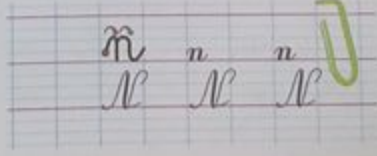 n n n
N N N